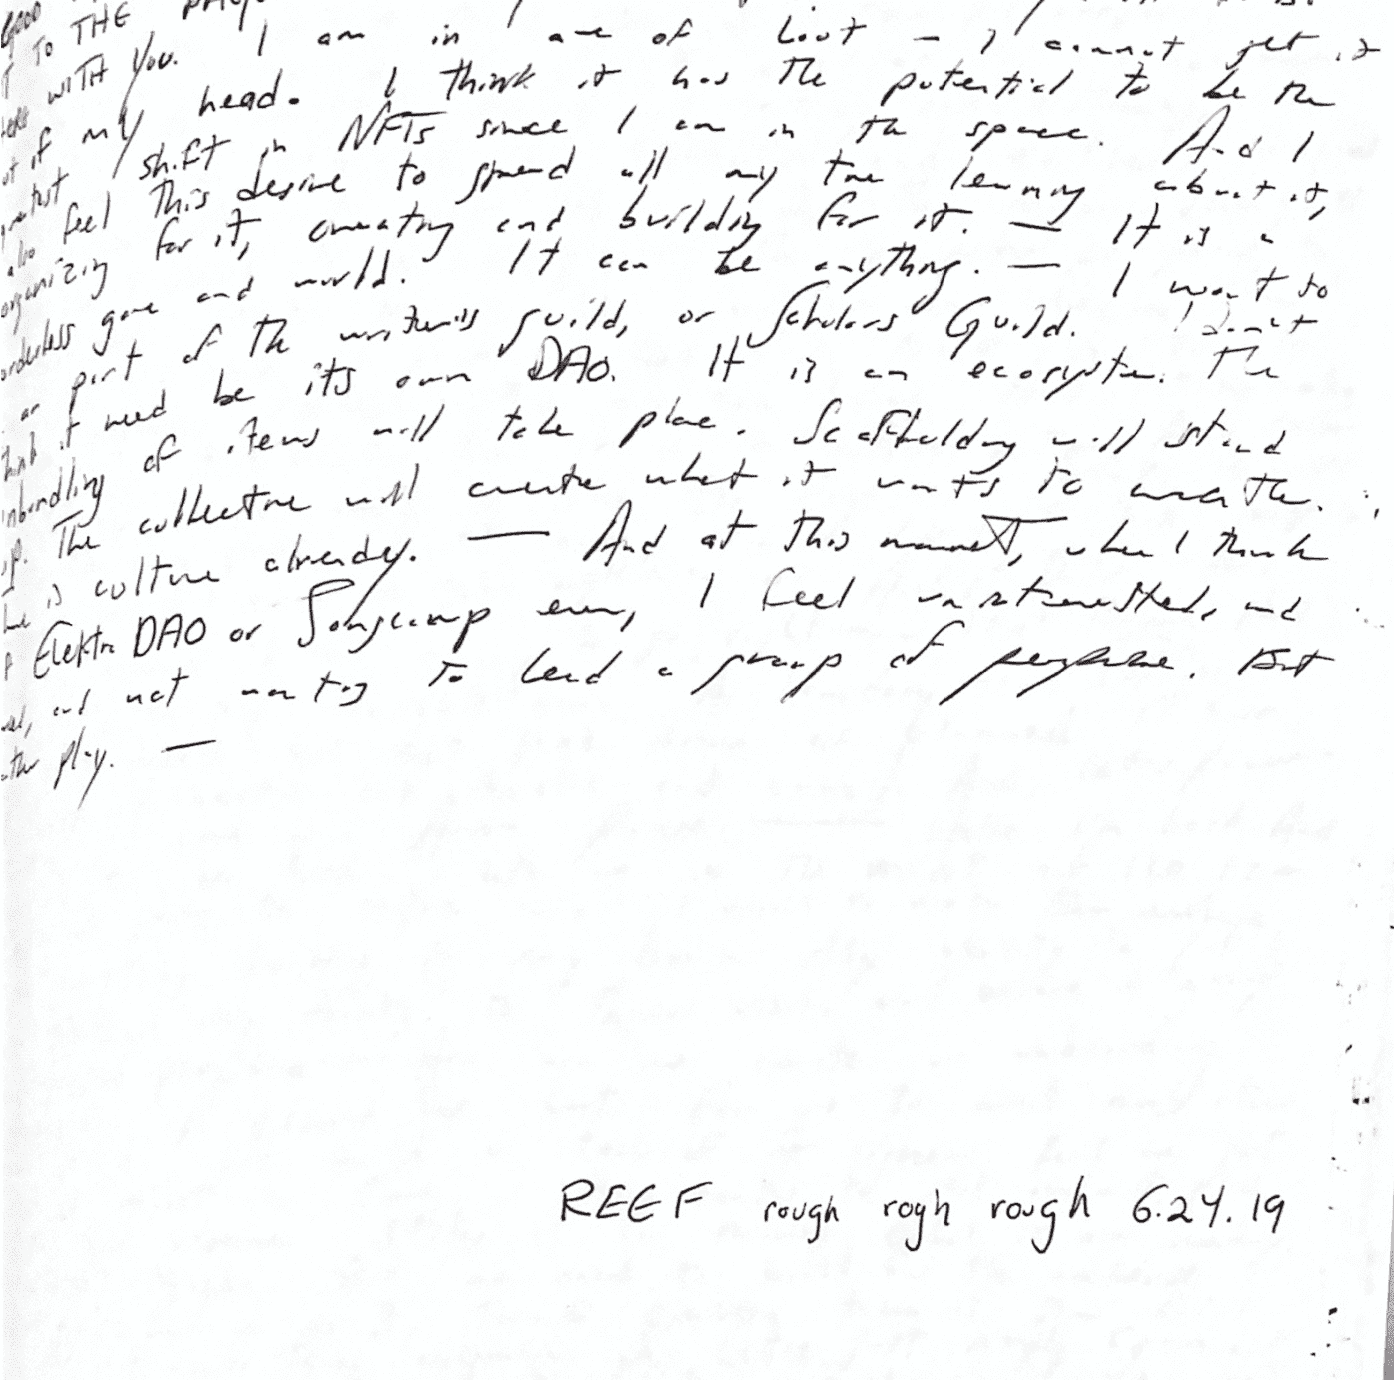 GOOD
TO THE
WITH YOU. I am in awe of Loot – I cannot get it
out of my head. I think it has the potential to be the
greatest shift in NFTs since I am in the space. And I
also feel this desire to spend all my time learning about it,
organizing for it, creating and building for it. — It is a
borderless game and world. It can be anything. — I want to
part of the writer's guild, or Scholars Guild. I don't
think it need be its own DAO. It is an ecosystem. The
unbundling of items will take place. Scaffolding will stand
up. The collective will create what it wants to create.
is culture already. — And at this moment, when I think
of Elektra DAO or Songcamp even, I feel uninterested, and
and not wanting to lead a group of people. But
rather play. —
REEF rough rogh rough 6.24.19